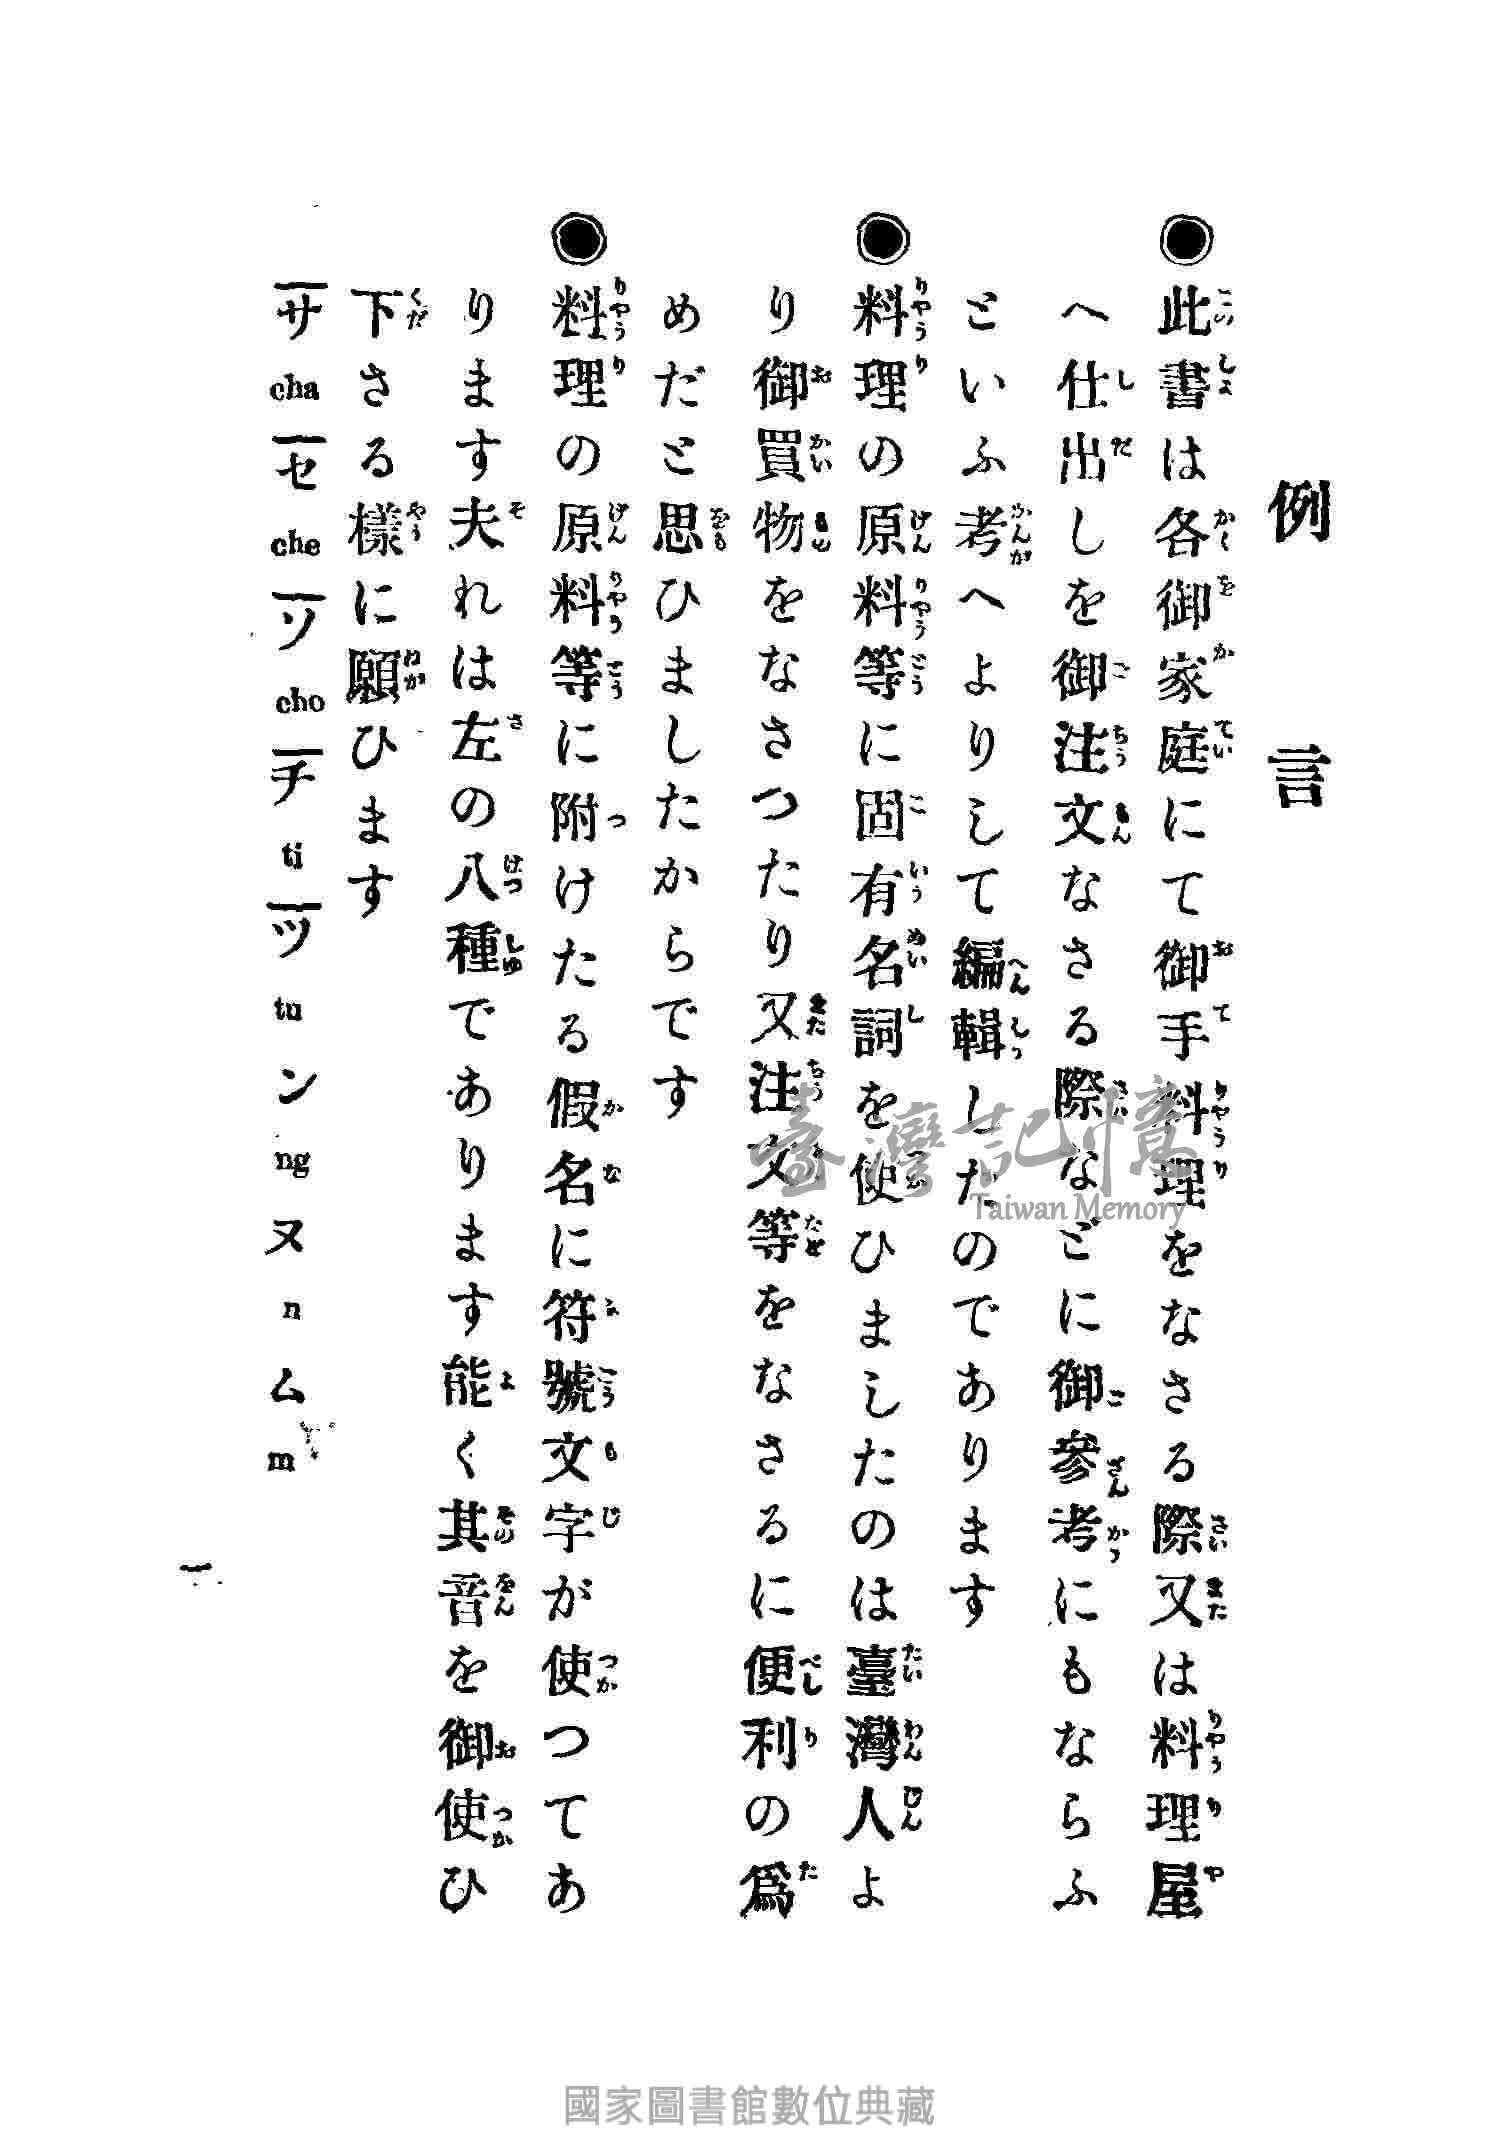 例言
◉此書は各御家庭にて御手料理をなさる際又は料理屋
へ仕出しを御注文なさる際などに御參考にもならふ
といふ考へよりして編輯したのであります
◉料理の原料等に固有名詞を使ひましたのは臺灣人よ
り御買物をなさつたり又注文等をなさるに便利の爲
めだと思ひましたからです
◉料理の原料等に附けたる假名に符號文字が使つてあ
ります夫れは左の八種であります能く其音を御使ひ
下さる樣に願ひます
サ cha セ che ソ cho チ ti ツ tu ン ng ヌ n ム m
一
臺灣記憶
Taiwan Memory
國家圖書館數位典藏